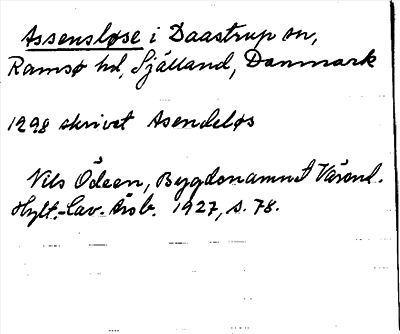 Assensløse i Daastrup sn,
Ramsø hd, Själland, Danmark
1298 skrivet Asendeløs
Nils Ödeen, Bygdonamnet Värend.
Hylt.-Cav. årsb. 1927, s. 78.